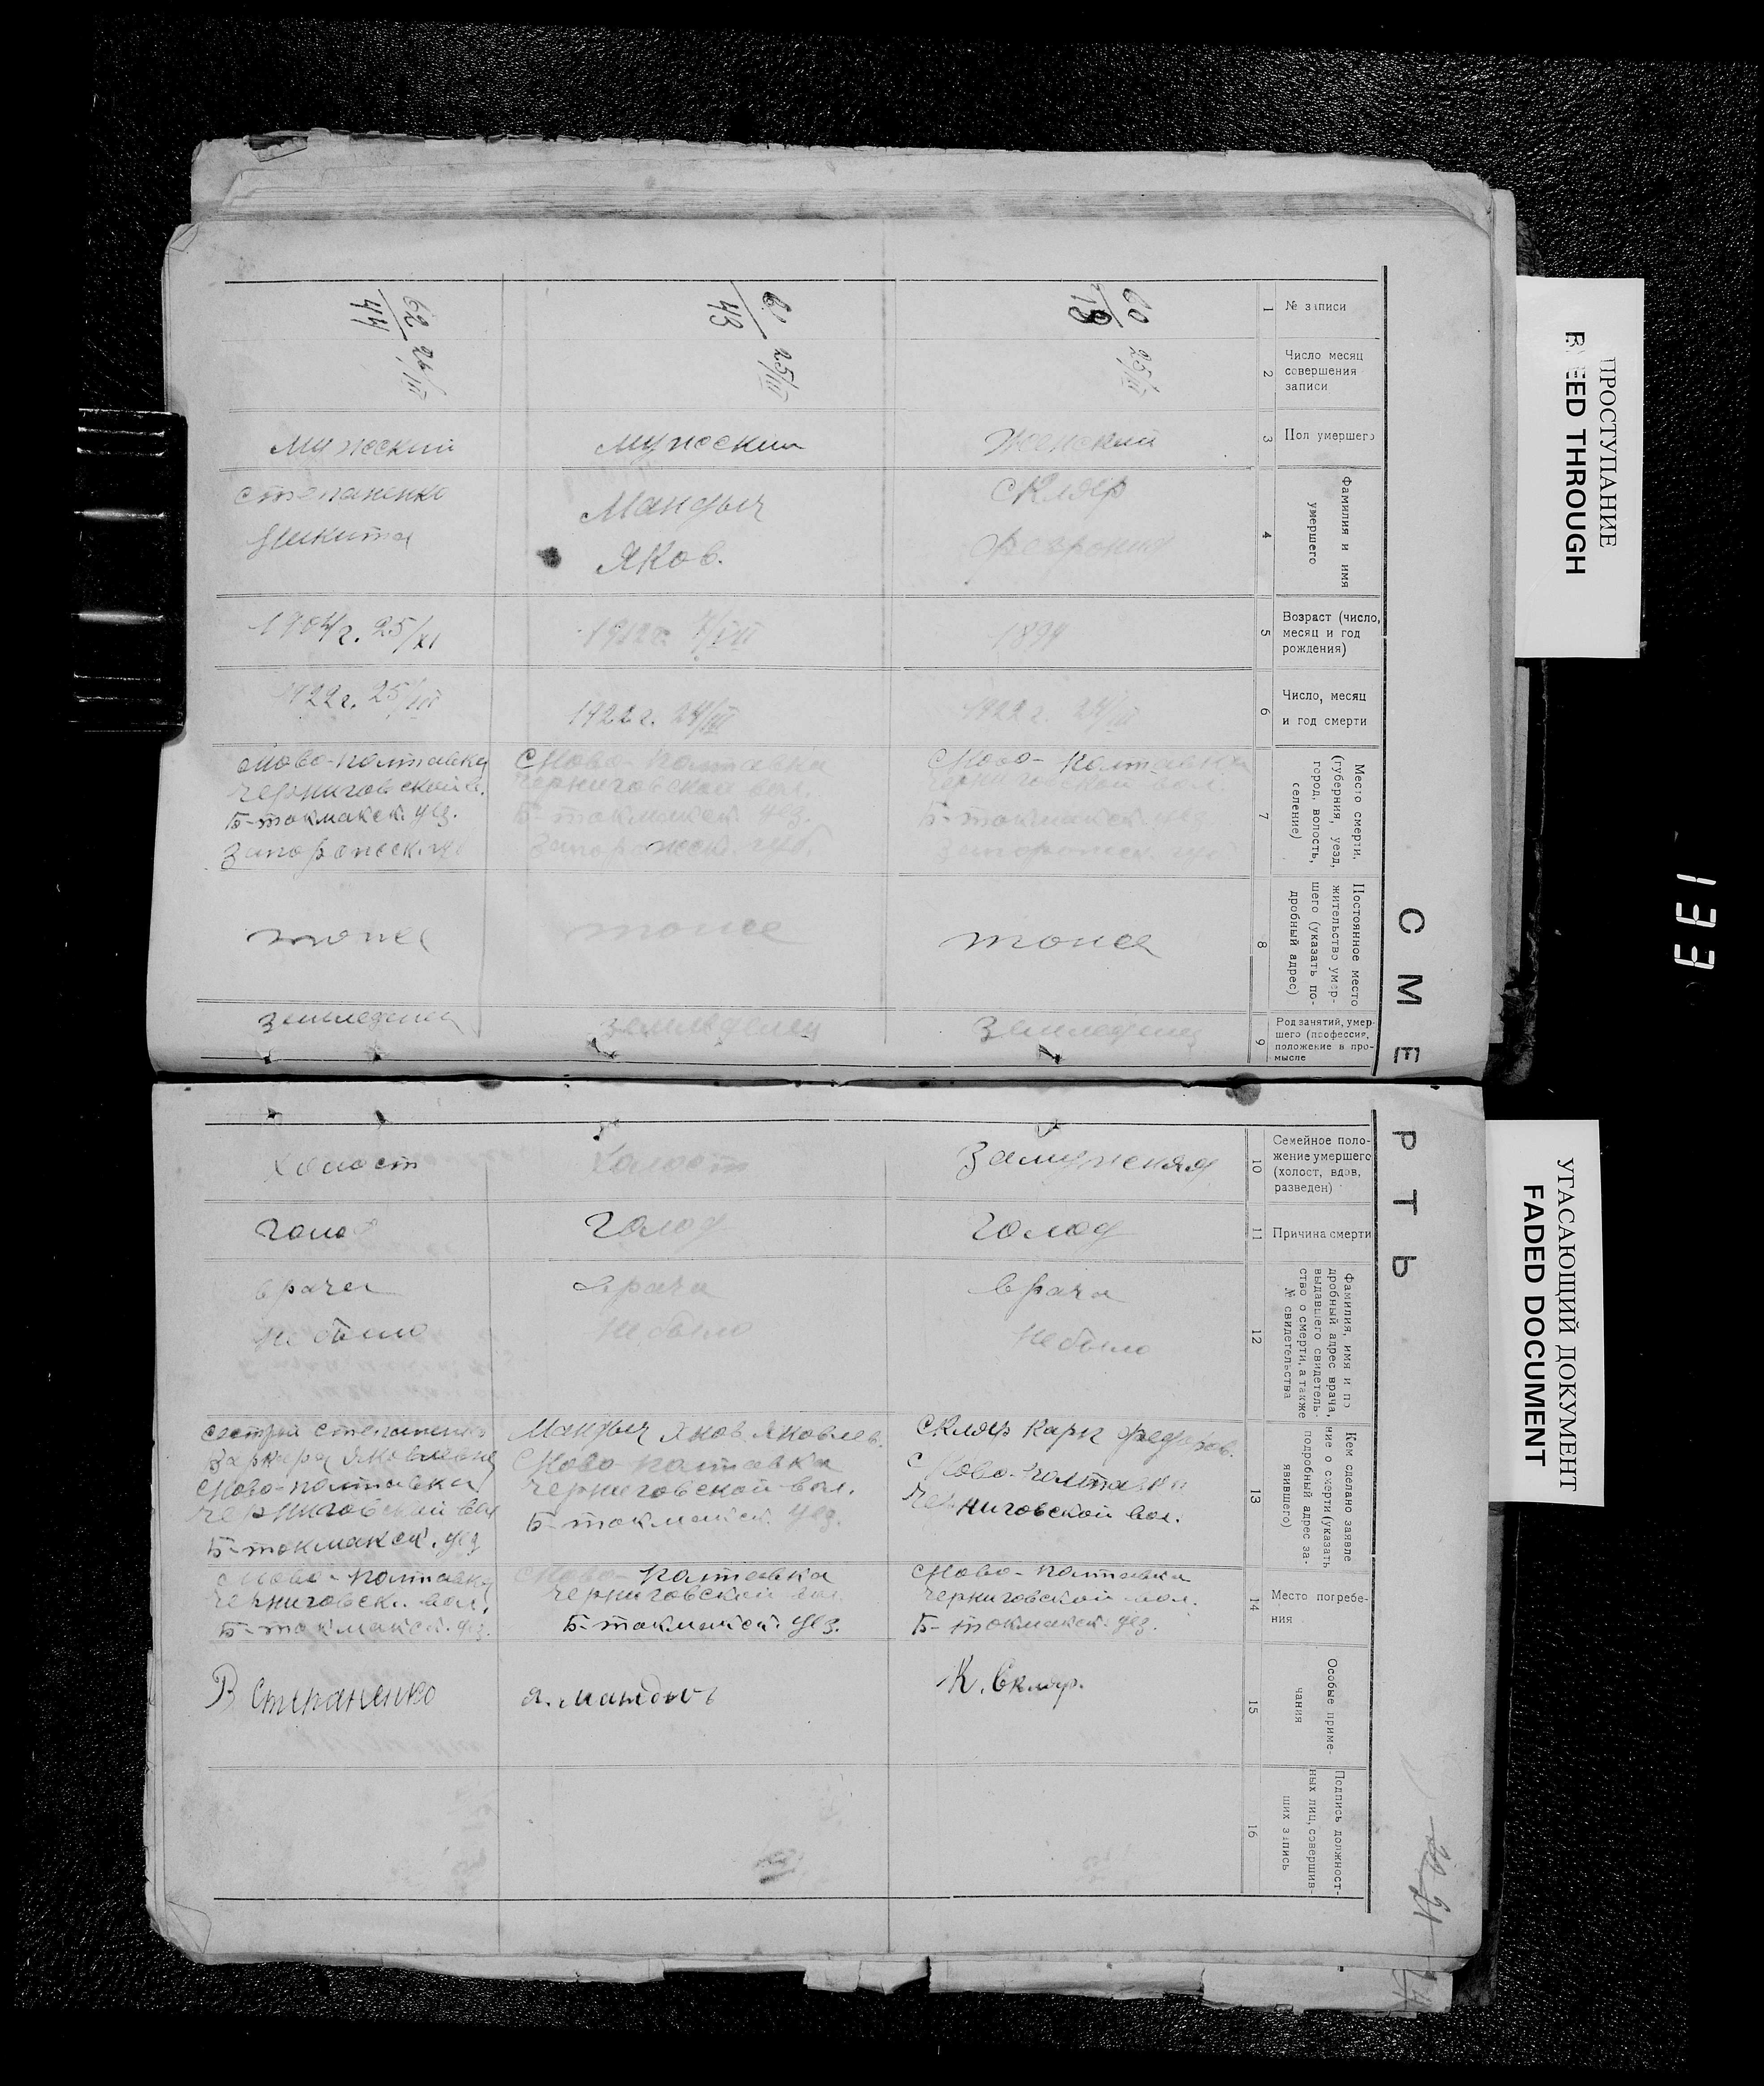 ПРОСТУПАНИЕ
BLEED THROUGH
УГАСАЮЩИЙ ДОКУМЕНТ
FADED DOCUMENT
133
СМЕРТЬ
1
№ записи
2
Число месяц
совершения
записи
3
Пол умершего
4
Фамилия и имя
умершего
5
Возраст (число,
месяц и год
рождения)
6
Число, месяц
и год смерти
7
Место смерти,
(губерния, уезд,
город, волость,
селение)
8
Постоянное место
жительство умер-
шего (указать по-
дробный адрес)
9
Род занятий, умер-
шего (профессия,
положение в про-
мысле
10
Семейное поло-
жение умершего
(холост, вдов,
разведен)
11
Причина смерти
12
Фамилия, имя и по
дробный адрес врача,
выдавшего свидетель-
ство о смерти, а также
№ свидетельства
13
Кем сделано заявле
ние о смерти (указать
подробный адрес за-
явившего)
14
Место погребе-
ния
15
Особые приме-
чания
16
Подпись должност-
ных лиц, совершив-
ших запись
60
25/III
Женский
Скляр
Феврония
1922 г. 24/III
Ново-Полтавка
Черниговской вол.
Б-токмакск. уез.
Запорожск. губ
тоже
Земледелец
Замужняя
голод
врача
не было
Скляр Карп Федоров.
Ново-Полтавка
Черниговской вол.
Ново-Полтавка
Черниговской вол.
Б-токмакск. уез.
К. Скляр.
43
25/III
мужский
Мандыч
Яков.
1922 г. 24/III
Ново-Полтавка
Черниговской вол.
Б-токмакск. уез.
Запорожск. губ.
тоже
земледелец
Холост
Голод
врача
не было
Мандыч Яков Яковлев.
Ново-Полтавка
Черниговской вол.
Б-токмакск. уез.
Ново-Полтавка
Черниговской вол.
Б-токмакск. уез.
Я. Мандыч
62
44
26/III
мужский
Степаненко
Никита
1904 г. 25/XI
1922 г. 25/III
Ново-Полтавка
Черниговской в.
Б-токмакск. уез.
Запорожск. губ
тоже
земледелец
Холост
голод
врача
не было
сестрой Степаненко
Варвара Яковлевна
Ново-Полтавка
Черниговской вол
Б-токмакск. уез
Ново-Полтавка
Черниговск. вол.
Б-токмакск. уез.
В Степаненко